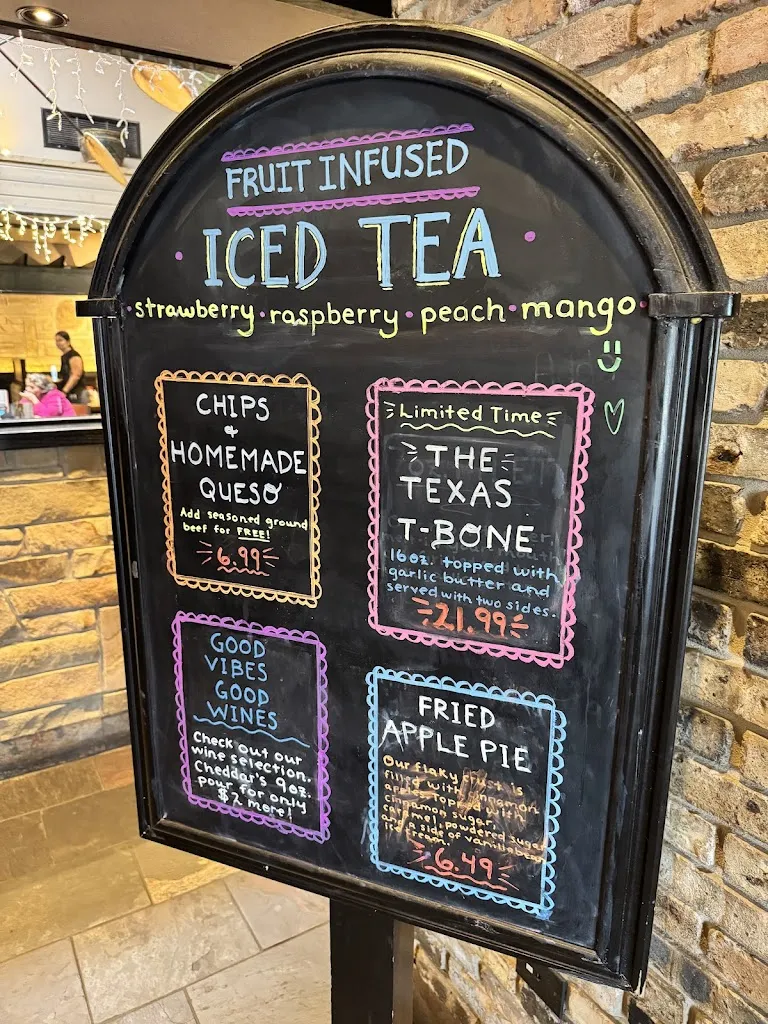 FRUIT INFUSED
ICED TEA
strawberry • raspberry • peach • mango
CHIPS
+
HOMEMADE
QUESO
Add seasoned ground
beef for FREE!
6.99
Limited Time
THE
TEXAS
T-BONE
16oz. topped with
garlic butter and
served with two sides.
21.99
GOOD
VIBES
GOOD
WINES
Check out our
wine selection.
Cheddar's 9oz.
pour for only
$2 more!
FRIED
APPLE PIE
Our flaky crust is
filled with cinnamon
apples topped with
cinnamon sugar,
caramel, powdered sugar
and a side of vanilla bean
ice cream.
6.49